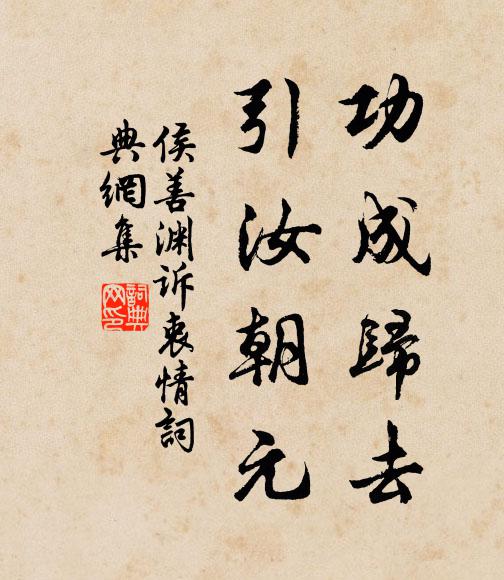 功成歸去
引汝朝元
侯善渊诉衷情詞
典網集
詞典
网印